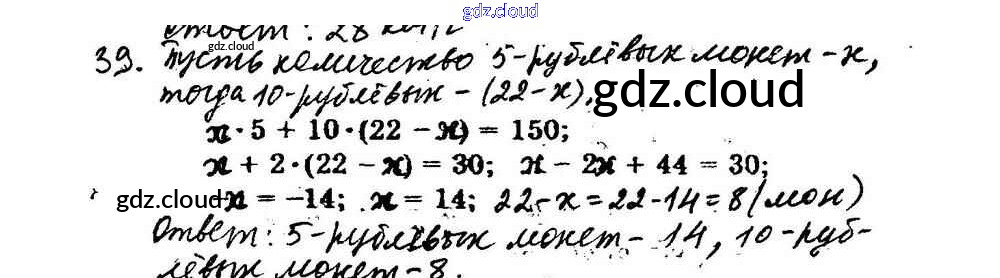 gdz.cloud
Ответ: 28
gdz.cloud
39. Пусть количество 5-рублёвых монет - x,
тогда 10-рублёвых - (22-x).
gdz.cloud
x·5 + 10·(22 - x) = 150;
x + 2·(22 - x) = 30; x - 2x + 44 = 30;
gdz.cloud
-x = -14; x = 14; 22-x=22-14=8 (мон)
Ответ: 5-рублёвых монет - 14, 10-руб-
лёвых монет-8.